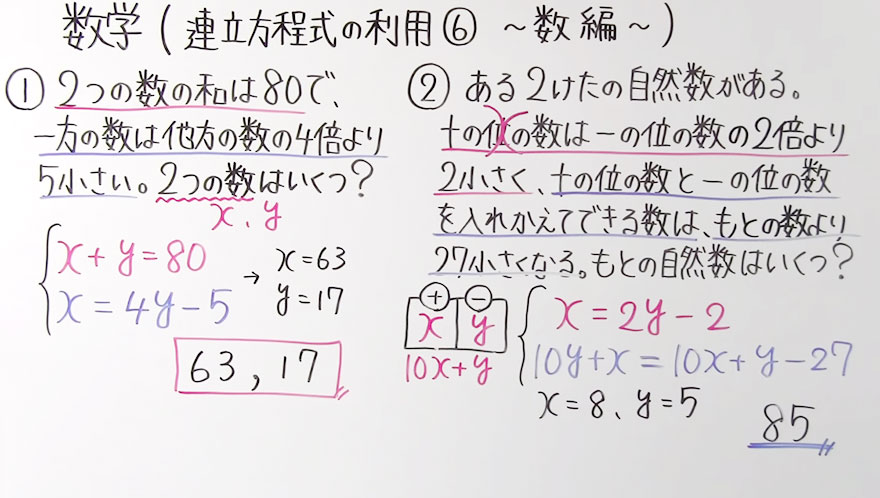 数学(連立方程式の利用⑥ ～数編～)
① 2つの数の和は80で、
一方の数は他方の数の4倍より
5小さい。2つの数はいくつ?
x、y
x+y=80
x=4y-5
→ x=63
y=17
63, 17
② ある2けたの自然数がある。
十の位の数は一の位の数の2倍より
2小さく、十の位の数と一の位の数
を入れかえてできる数は、もとの数より
27小さくなる。もとの自然数はいくつ?
+ -
x y
10x+y
x=2y-2
10y+x=10x+y-27
x=8、y=5
85